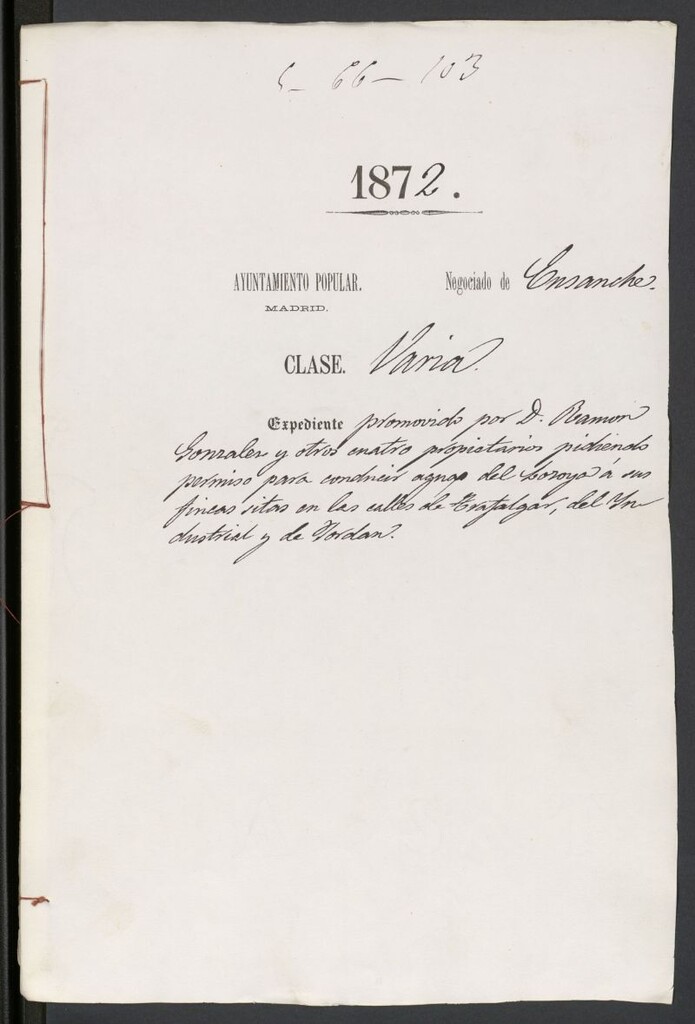 5 - 66 - 103
1872.
AYUNTAMIENTO POPULAR. Negociado de Ensanche.
MADRID.
CLASE. Varia.
Expediente promovido por D. Ramon
Gonzalez y otros cuatro propietarios pidiendo
permiso para conducir aguas del Lozoya á sus
fincas sitas en las calles de Trafalgar, del In-
dustrial y de Jordan.